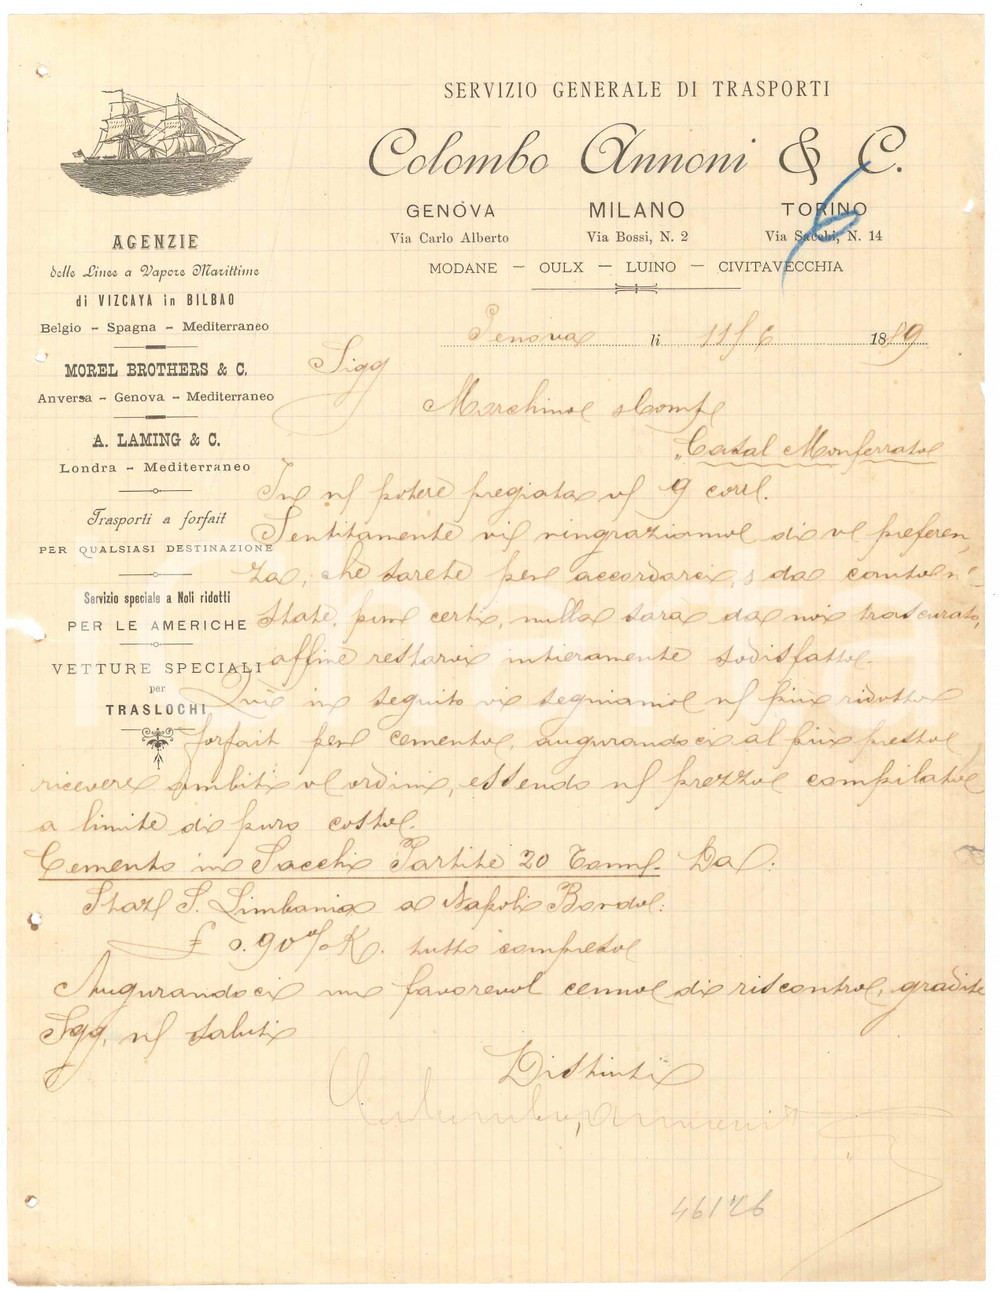 SERVIZIO GENERALE DI TRASPORTI
Colombo Annoni & C.
GENOVA MILANO TORINO
Via Carlo Alberto Via Bossi, N. 2 Via Sacchi, N. 14
MODANE — OULX — LUINO — CIVITAVECCHIA
AGENZIE
delle Linee a Vapore Marittime
di VIZCAYA in BILBAO
Belgio - Spagna - Mediterraneo
MOREL BROTHERS & C.
Anversa - Genova - Mediterraneo
A. LAMING & C.
Londra - Mediterraneo
Trasporti a forfait
PER QUALSIASI DESTINAZIONE
Servizio speciale a Noli ridotti
PER LE AMERICHE
VETTURE SPECIALI
per
TRASLOCHI
Genova li 11/6 1889
Sigg
Marchino & Comp
Casal Monferrato
In n/ potere pregiata v/ 9 corr.
Sentitamente vi ringraziamo di v/ preferen
za, che sarete per accordarci, da canto n/
state pur certi, nulla sarà da noi trascurato,
affine restarvi intieramente sodisfatto.
Qui in seguito vi segniamo n/ più ridotto
forfait per cemento, augurandoci al più presto
ricevere ambiti v/ ordini, essendo n/ prezzo compilato
a limite di puro costo.
Cemento in Sacchi Partite 20 Tonn. Da:
Staz S. Limbania a Napoli Bordo:
£ 0.90 %K. tutto compreso
Augurandoci un favorevol cenno di riscontro, gradite
Sgg, n/ saluti
Distinti
Colombo, Annoni
46126